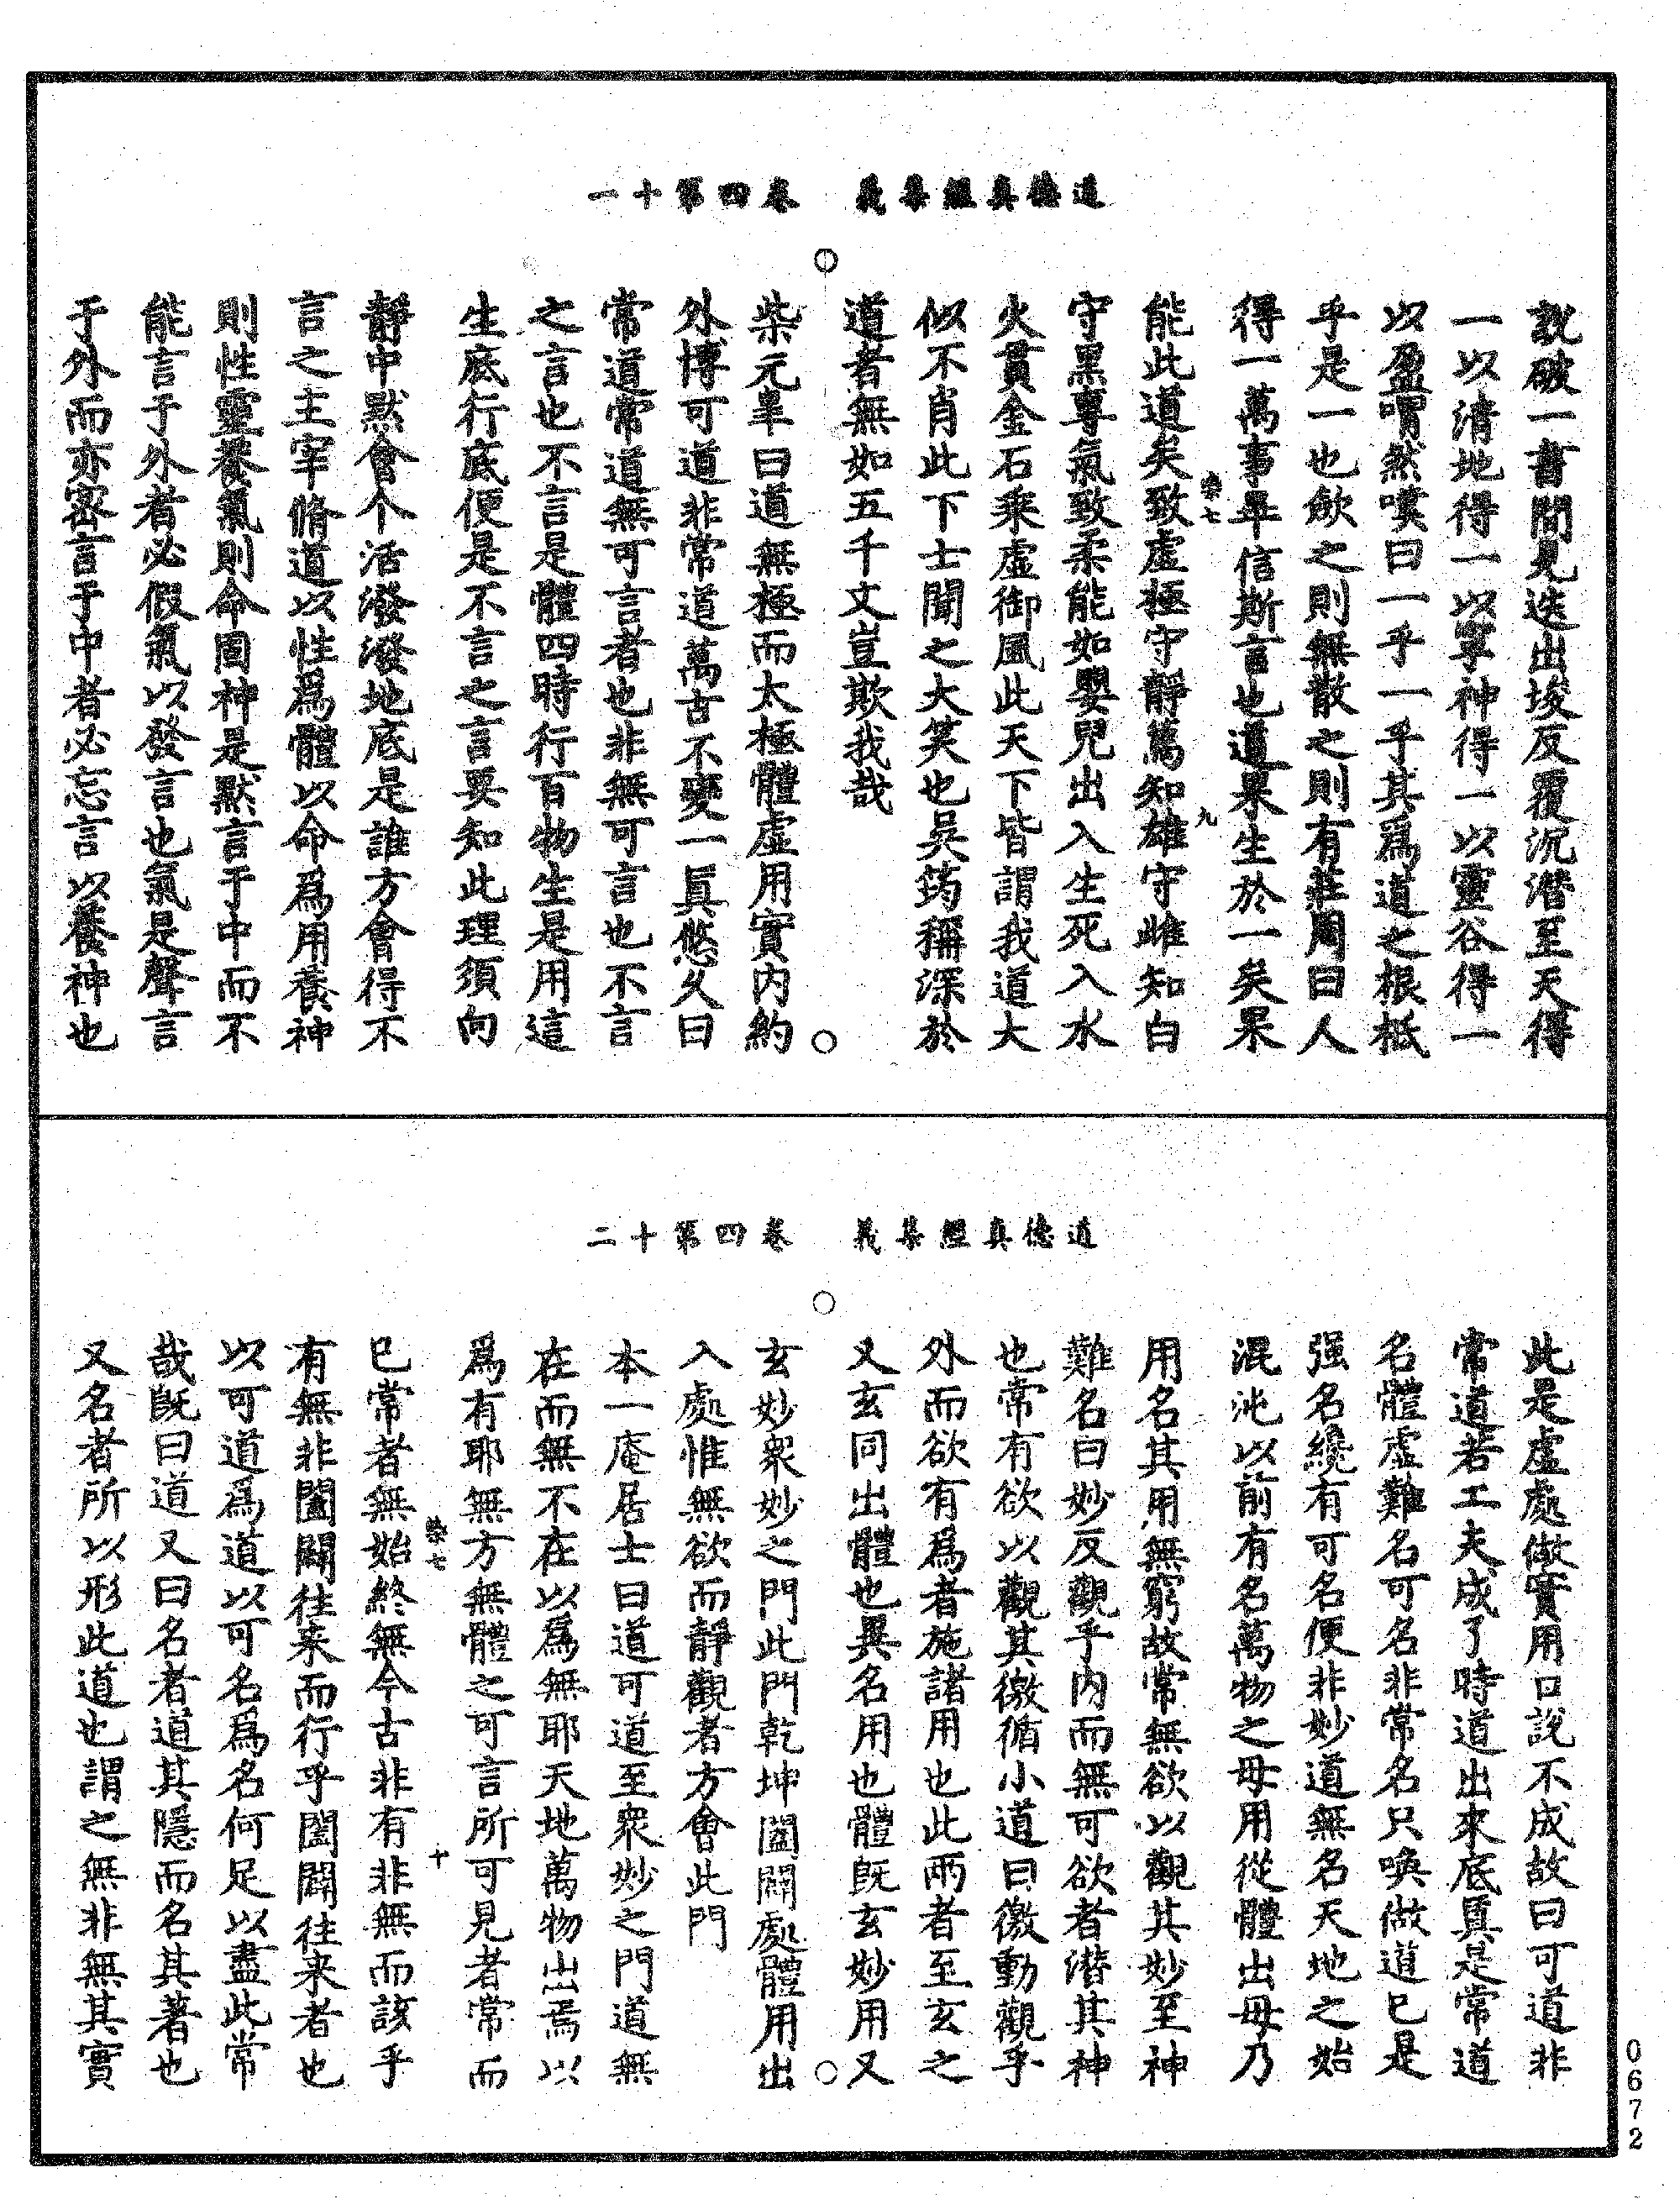 道德真經集義　卷四第十一
說破一書間見迭出埈反覆沉潛至天得
一以清地得一以寧神得一以靈谷得一
以盈喟然嘆曰一乎一乎其爲道之根柢
乎是一也斂之則無散之則有莊周曰人
得一萬事畢信斯言也道果生於一矣果
染七　九
能此道矣致虛極守靜篤知雄守雌知白
守黑專氣致柔能如嬰兒出入生死入水
火貫金石乘虛御風此天下皆謂我道大
似不肖此下士聞之大笑也吳筠稱深於
道者無如五千文豈欺我哉
柴元臯曰道無極而太極體虛用實内約
外博可道非常道萬古不變一眞悠久曰
常道常道無可言者也非無可言也不言
之言也不言是體四時行百物生是用這
生底行底便是不言之言要知此理須向
靜中默會个活潑潑地底是誰方會得不
言之主宰脩道以性爲體以命爲用養神
則性靈養氣則命固神是默言于中而不
能言于外者必假氣以發言也氣是聲言
于外而亦密言于中者必忘言以養神也
道德真經集義　卷四第十二
此是虛處做實用口說不成故曰可道非
常道若工夫成了時道出來底眞是常道
名體虛難名可名非常名只喚做道巳是
强名纔有可名便非妙道無名天地之始
混沌以前有名萬物之母用從體出母乃
用名其用無窮故常無欲以觀其妙至神
難名曰妙反觀乎内而無可欲者潜其神
也常有欲以觀其徼循小道曰徼動觀乎
外而欲有爲者施諸用也此兩者至玄之
又玄同出體也異名用也體旣玄妙用又
玄妙衆妙之門此門乾坤闔闢處體用出
入處惟無欲而靜觀者方會此門
本一庵居士曰道可道至衆妙之門道無
在而無不在以爲無耶天地萬物出焉以
爲有耶無方無體之可言所可見者常而
染七　十
巳常者無始終無今古非有非無而該乎
有無非闔闢往来而行乎闔闢往来者也
以可道爲道以可名爲名何足以盡此常
哉旣曰道又曰名者道其隱而名其著也
又名者所以形此道也謂之無非無其實
0672